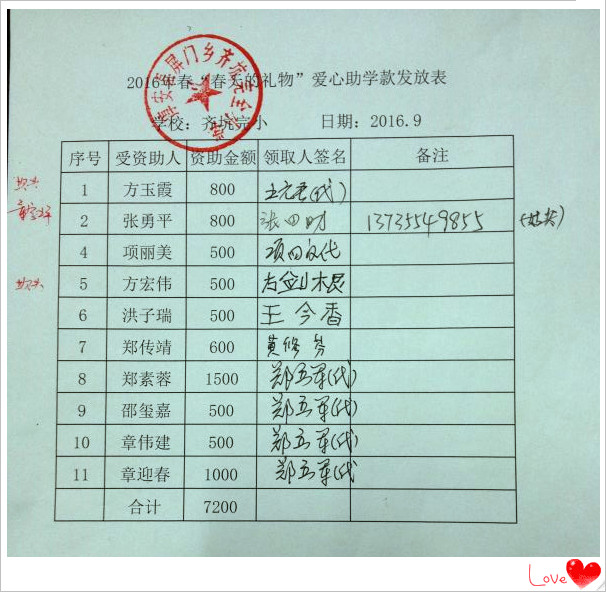 2016年春“春天的礼物”爱心助学款发放表
学校：齐坑完小 日期：2016.9
序号 受资助人 资助金额 领取人签名 备注
1 方玉霞 800 (代)
2 张勇平 800 张四 13735549855
4 项丽美 500 项四 代
5 方宏伟 500 方金木
6 洪子瑞 500 王今香
7 郑传靖 600 黄修
8 郑素蓉 1500 郑玉军(代)
9 邵玺嘉 500 郑玉军(代)
10 章伟建 500 郑玉军(代)
11 章迎春 1000 郑玉军(代)
合计 7200
Love